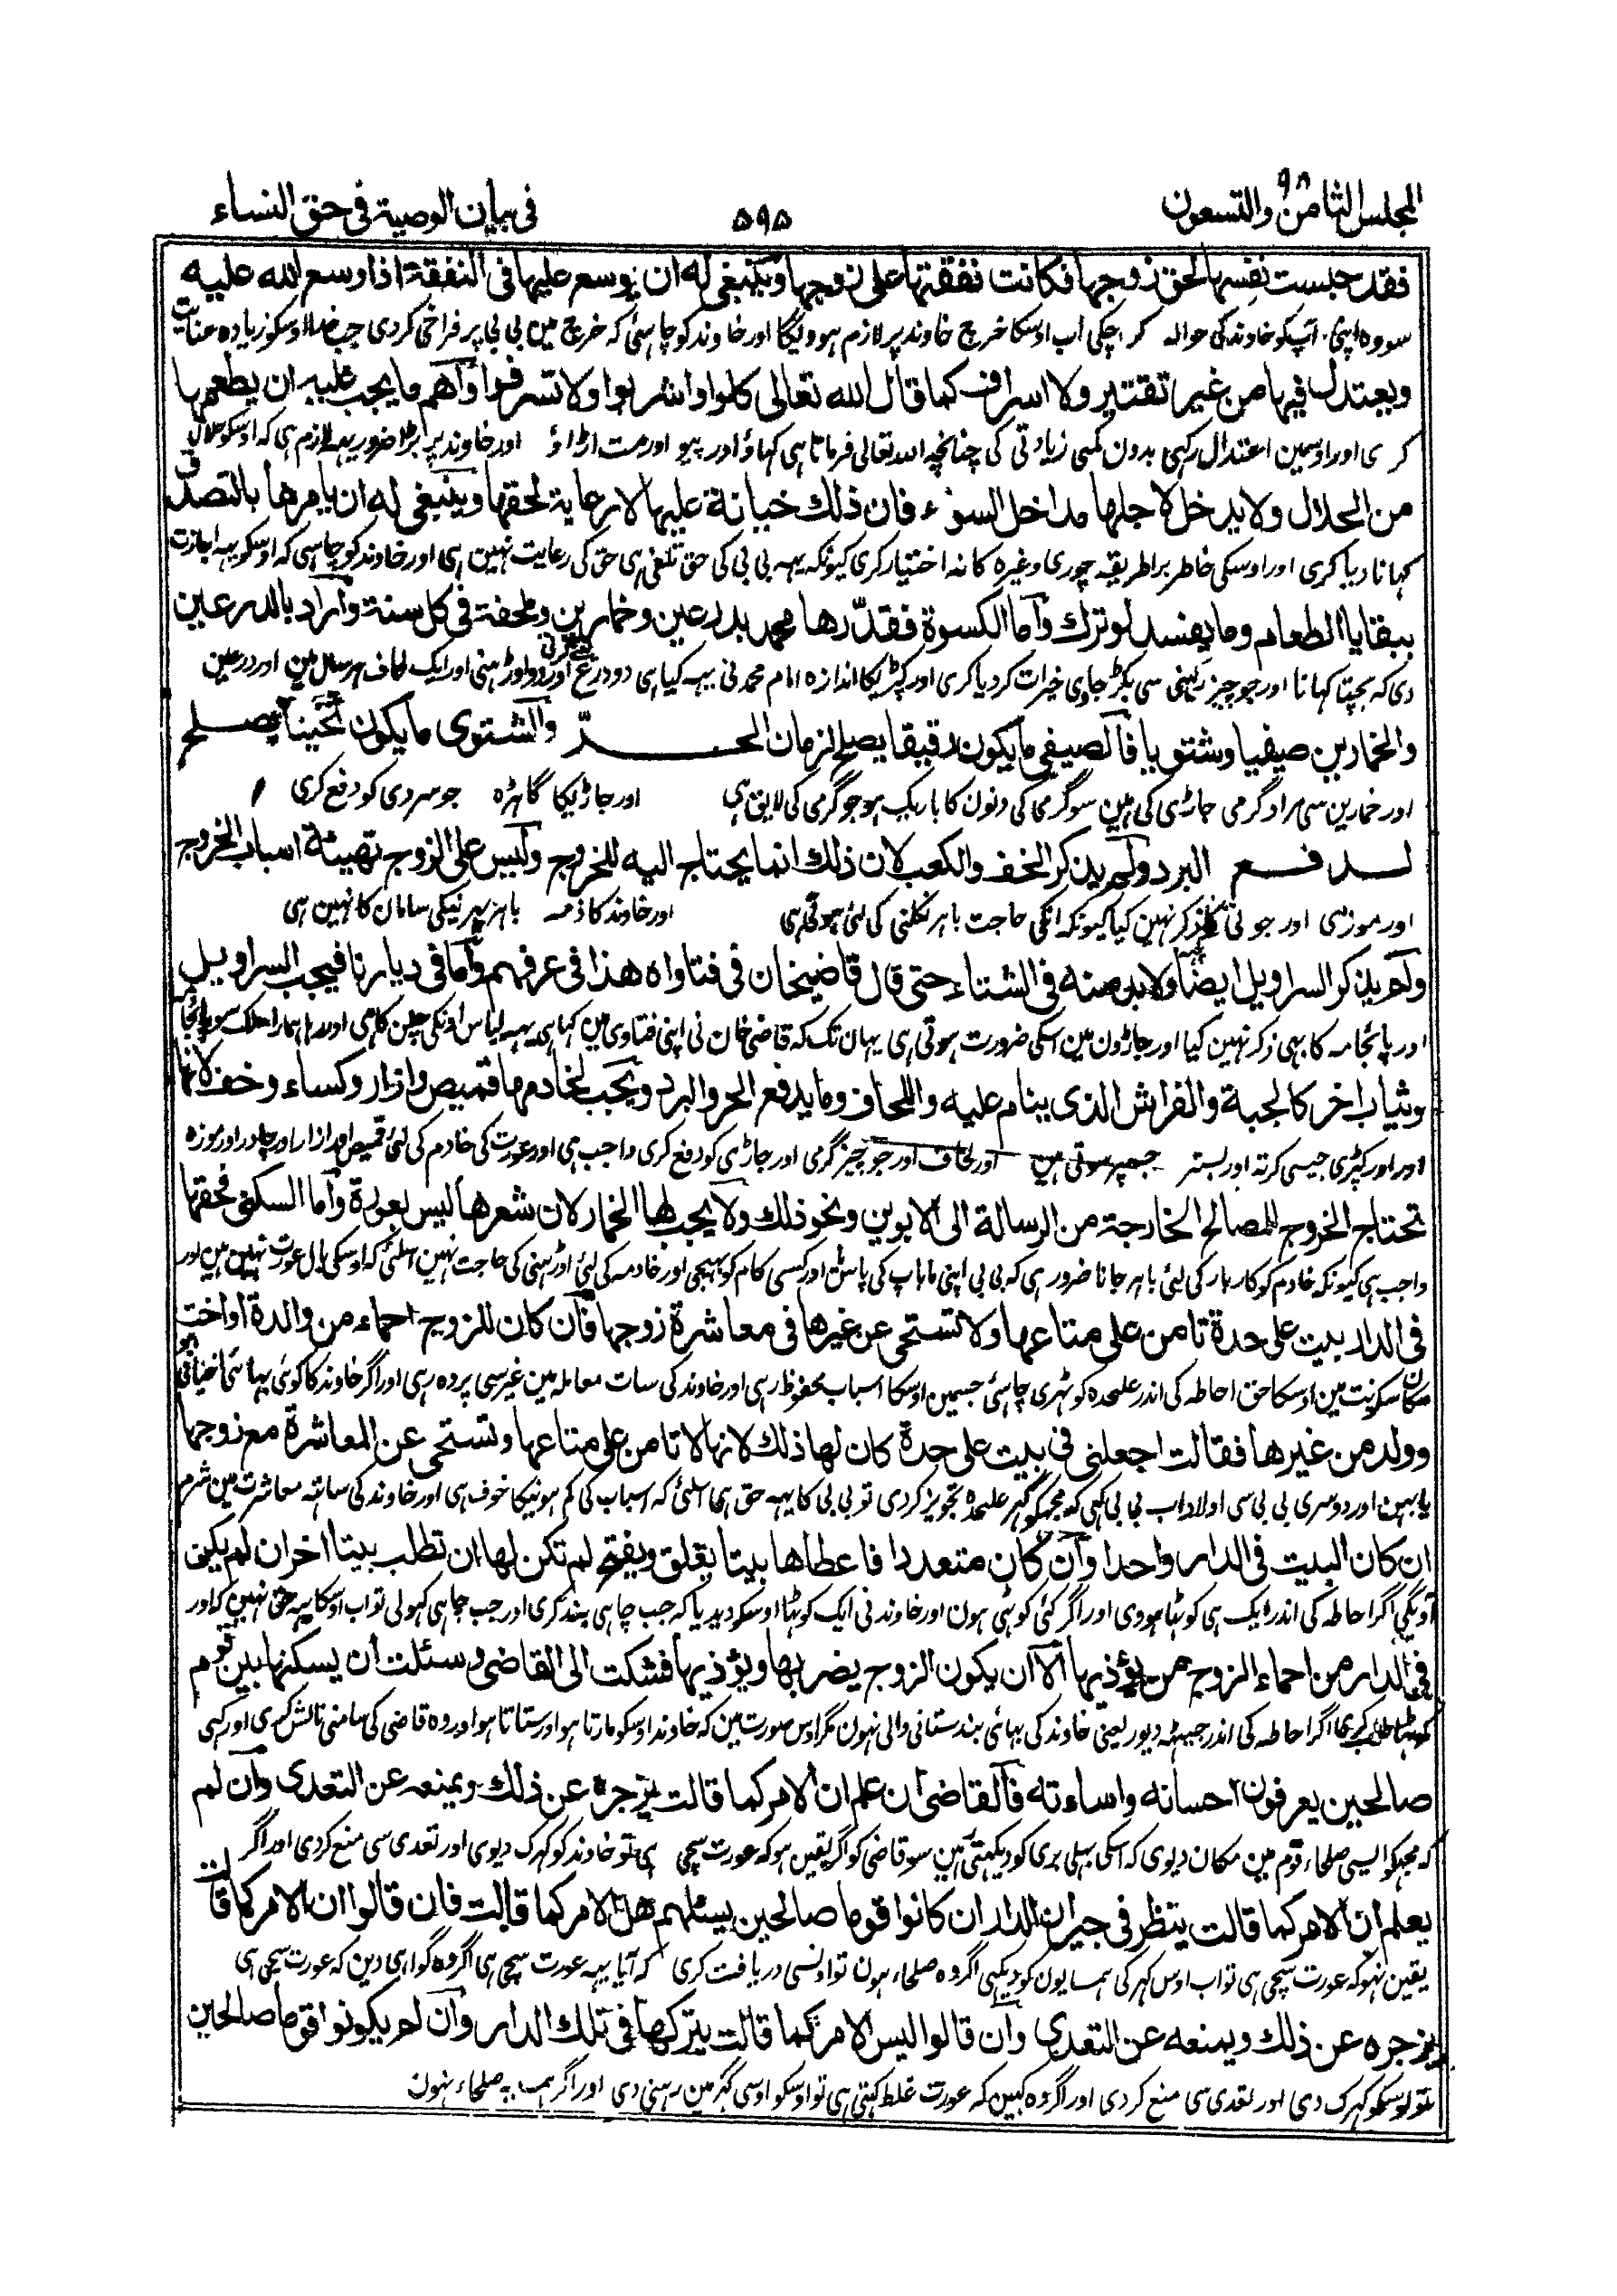 المجلس الثامن والتسعون ٩٨
٥٩٥
فى بيان الوصية فى حق النساء
فقد حبست نفسها لحق زوجها فكانت نفقتها على زوجها وينبغى له ان يوسع عليها فى النفقة اذا وسع الله عليه
سو وہ اپنی آپ کو خاوند کی حوالہ کر چکی اب اوسکا خرچ خاوند پر لازم ہوویگا اور خاوند کو چاہئی کہ خرچ مین بی بی پر فراخی کردی جب خدا اوسکو زیادہ عنایت
ويعتدل فيها من غير تقتير ولا اسراف كما قال الله تعالى كلوا واشربوا ولا تسرفوا وأهم ما يجب عليه ان يطعمها
کری اور اوسمین اعتدال رکہی بدون کمی زیادتی کی چنانچہ اللہ تعالی فرماتا ہی کہاؤ اور پیو اور مت اڑاؤ اور خاوند پر بڑا ضرور یہہ لازم ہی کہ اوسکو حلال
من الحلال ولا يدخل لاجلها مداخل السوء فان ذلك خيانة عليها لا رعاية لحقها وينبغى له ان يامرها بالتصدق
کہانا دیا کری اور اوسکی خاطر برا طریقہ چوری وغیرہ کا نہ اختیار کری کیونکہ یہہ بی بی کی حق تلفی ہی حق کی رعایت نہین ہی اور خاوند کو چاہئی کہ اوسکو یہہ اجازت
ببقايا الطعام وما يفسد لو ترك وأما الكسوة فقدّرها محمد بدرعين وخمارين وملحفة فى كل سنة وأراد بالدرعين
دی کہ بچتا کہانا اور جو چیز رہنی سی بگڑ جاوی خیرات کر دیا کری اور کپڑیکا اندازہ امام محمد نی یہہ کیا ہی دو درع اور دو اوڑہنی اور ایک لحاف ہر سال مین اور درعین
والخمارين صيفيا وشتويا فالصيفى ما يكون رقيقا يصلح لزمان الحرّ والشتوى ما يكون ثخينا يصلح
اور خمارین سی مراد گرمی جاڑی کی ہین سو گرمی کی دنون کا باریک ہو جو گرمی کی لایق ہی اور جاڑیکا گاہڑہ جو سردی کو دفع کری
لدفع البرد ولم يذكر الخف والكعب لان ذلك انما يحتاج اليه للخروج وليس على الزوج تهيئة اسباب الخروج
اور موزی اور جوتی کا ذکر نہین کیا کیونکہ انکی حاجت باہر نکلنی کی لئی ہوتی ہی اور خاوند کا ذمہ باہر پہرنیکی سامان کا نہین ہی
ولم يذكر السراويل ايضا ولا بد منه فى الشتاء حتى قال قاضيخان فى فتاواه هذا فى عرفهم وأما فى ديارنا فيجب السراويل
اور پائجامہ کا بہی ذکر نہین کیا اور جاڑون مین اسکی ضرورت ہوتی ہی یہان تک کہ قاضی خان نی اپنی فتاوی مین کہا ہی یہہ لباس اونکی چلن کا ہی اور رہا ہمارا ملک سو پائجامہ
وثياب اخر كالجبة والفراش الذى ينام عليه واللحاف وما يدفع الحر والبرد ويجب لخادمها قميص وازار وكساء وخف لانها
اور اور کپڑی جیسی کرتہ اور بستر جسپر سوتی ہین اور لحاف اور جو چیز گرمی اور جاڑی کو دفع کری واجب ہی اور عورت کی خادم کی لئی قمیص اور ازار اور چادر اور موزہ
تحتاج الخروج للمصالح الخارجة من الرسالة الى الابوين ونحو ذلك ولا يجب لها الخمار لان شعرها ليس بعورة وأما السكنى فحقها
واجب ہی کیونکہ خادم کو کاربار کی لئی باہر جانا ضرور ہی کہ بی بی اپنی ماباپ کی پاس اور کسی کام کو بہیجی اور خادمہ کی لئی اڑہنی کی حاجت نہین اسلئی کہ اوسکی بال عورت نہین ہین اور
فى الدار بيت على حدة تامن على متاعها ولا تستحى عن غيرها فى معاشرة زوجها فان كان للزوج احماء من والدة او اخت
مکان سکونت مین اوسکا حق احاطہ کی اندر علحدہ کوٹہری چاہئی جسمین اوسکا اسباب محفوظ رہی اور خاوند کی سات معاملہ مین غیر سی پردہ رہی اور اگر خاوند کا کوئی بہائی اخیافی ہو
وولد من غيرها فقالت اجعلنى فى بيت على حدة كان لها ذلك لانها لا تامن على متاعها وتستحى عن المعاشرة مع زوجها
یا بہن اور دوسری بی بی سی اولاد اب بی بی کہی کہ مجہکو گہر علیحدہ تجویز کردی تو بی بی کا یہہ حق ہی اسلئی کہ اسباب کی گم ہونیکا خوف ہی اور خاوند کی ساتہہ معاشرت مین شرم
ان كان البيت فى الدار واحدا وأن كان متعددا فاعطاها بيتا يغلق ويفتح لم تكن لها ان تطلب بيتا اخر ان لم يكن
آویگی اگر احاطہ کی اندر ایک ہی کوٹہا ہووی اور اگر کئی کوٹہی ہون اور خاوند نی ایک کوٹہا اوسکو دیدیا کہ جب چاہی بند کری اور جب چاہی کہولی تو اب اوسکا یہہ حق نہین کہ اور
فى الدار من احماء الزوج من يؤذيها الا ان يكون الزوج يضربها ويؤذيها فشكت الى القاضى وسئلت ان يسكنها بين قوم
کوٹہا طلب کری اگر احاطہ کی اندر جیٹہہ دیور یعنی خاوند کی بہائی بند ستانی والی نہون مگر اوس صورت مین کہ خاوند اوسکو مارتا ہو اور ستاتا ہو اور وہ قاضی کی سامنی نالش کری اور کہی
صالحين يعرفون احسانه واساءته فالقاضى ان علم ان الامر كما قالت يزجره عن ذلك ويمنعه عن التعدى وأن لم
کہ مجہکو ایسی صلحاء قوم مین مکان دیوی کہ اسکی بہلی بری کو دیکہتی ہین سو قاضی کو اگر یقین ہو کہ عورت سچی ہی تو خاوند کو گہرک دیوی اور تعدی سی منع کردی اور اگر
يعلم ان الامر كما قالت ينظر فى جيران الدار ان كانوا قوما صالحين يسئلهم هل الامر كما قالت فان قالوا ان الامر كما قالت
یقین نہو کہ عورت سچی ہی تو اب اوس گہر کی ہمسایون کو دیکہی اگر وہ صلحاء ہون تو اونسی دریافت کری کہ آیا یہہ عورت سچی ہی اگر وہ گواہی دین کہ عورت سچی ہی
يزجره عن ذلك ويمنعه عن التعدى وأن قالوا ليس الامر كما قالت يتركها فى تلك الدار وأن لم يكونوا قوما صالحين
تو اوسکو گہرک دی اور تعدی سی منع کردی اور اگر وہ کہین کہ عورت غلط کہتی ہی تو اوسکو اوسی گہر مین رہنی دی اور اگر ہمسایہ صلحاء نہون